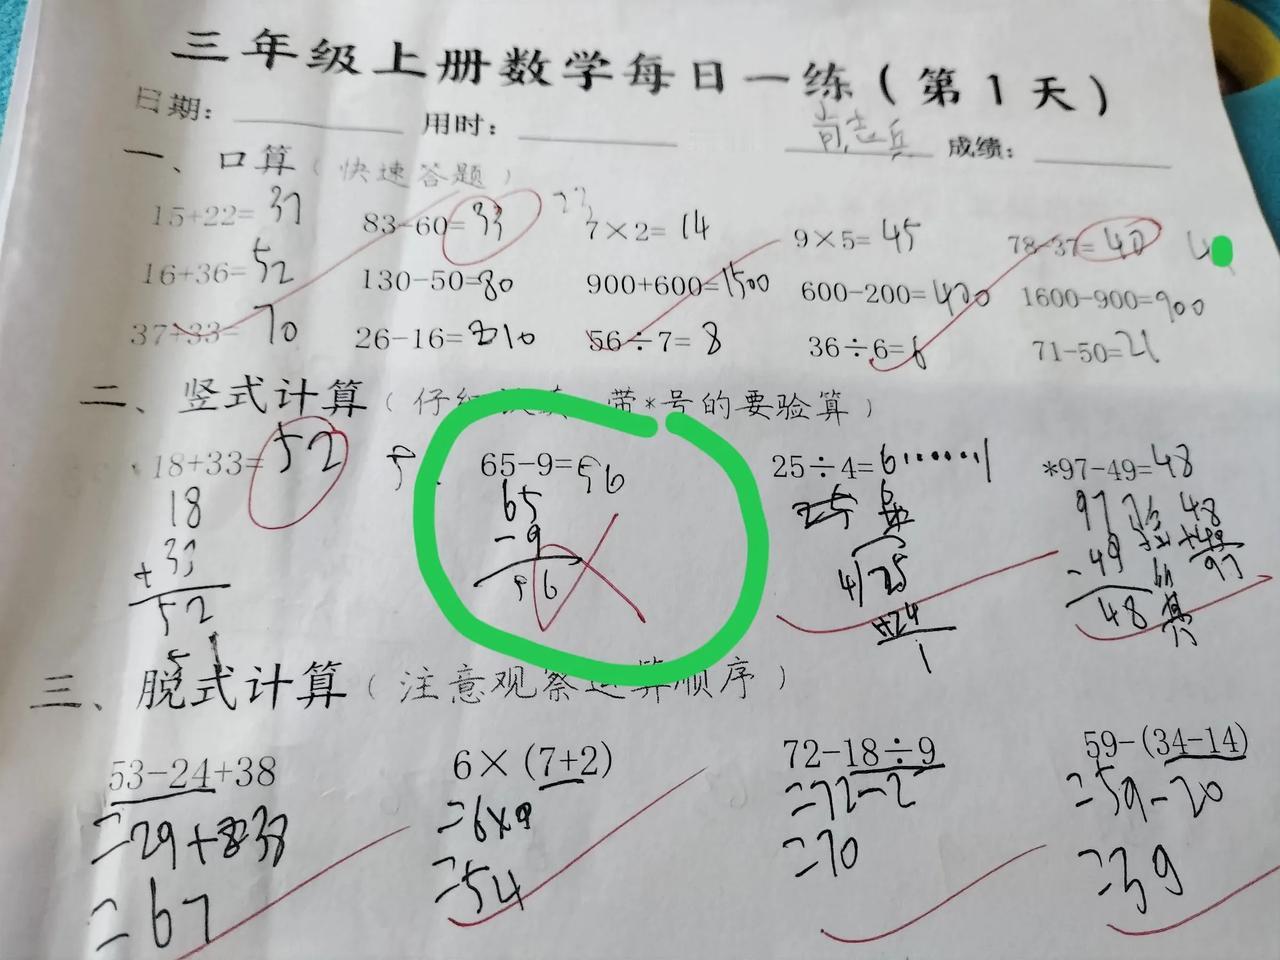 三年级上册数学每日一练(第1天)
日期: 用时: 尚志兵 成绩:
一、口算(快速答题)
15+22=37 83-60=33 23 7×2=14 9×5=45 78-37=40
16+36=52 130-50=80 900+600=1500 600-200=400 1600-900=900
37+33=70 26-16=10 56÷7=8 36÷6=6 71-50=21
二、竖式计算(仔细 带*号的要验算)
18+33=52 65-9=56 25÷4=6……1 *97-49=48
18 65 6 97 48
+33 -9 4/25 -49 +49
52 56 24 48 97
51 1
三、脱式计算(注意观察运算顺序)
53-24+38 6×(7+2) 72-18÷9 59-(34-14)
=29+38 =6×9 =72-2 =59-20
=67 =54 =70 =39